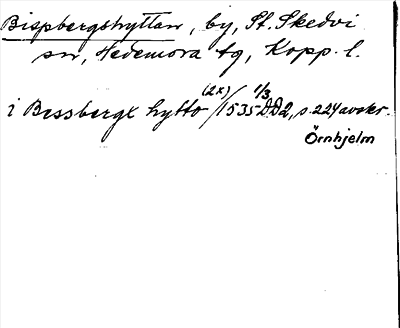 Bispbergshyttan, by, St. Skedvi
sn, Hedemora tg, Kopp. l.
(2x) 1/3
i Bessbergx hytto /1535 DD2, s. 224 avskr.
Örnhjelm